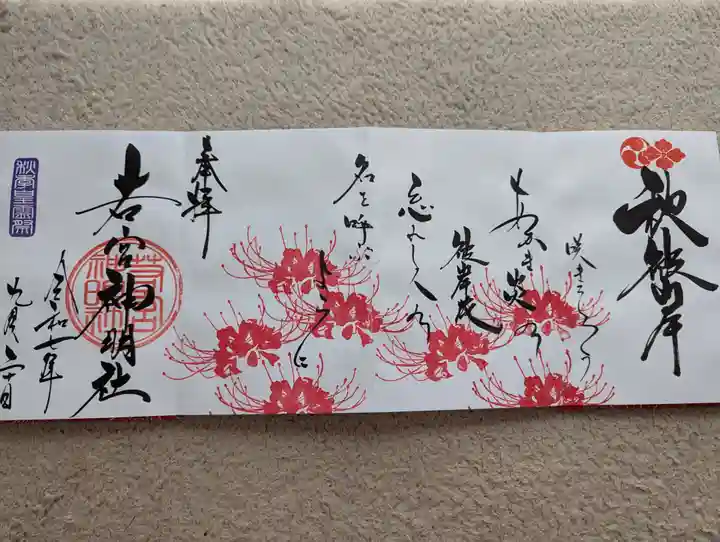 秋彼岸
咲きそろう
炎の
彼岸花
忘れし人の
名を呼ぶ
ように
奉拝
若宮神明社
若宮神明社
秋季皇霊祭
令和七年
九月二十日